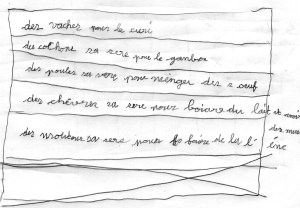 des vaches pour le cuni
du cothons sa sere pour le ganbon
des poules sa sere pour ménger des s oeuf
des chévres sa sere pour boiare du lait et ausi
des moutons sa sere pour fe faire de la l'éne